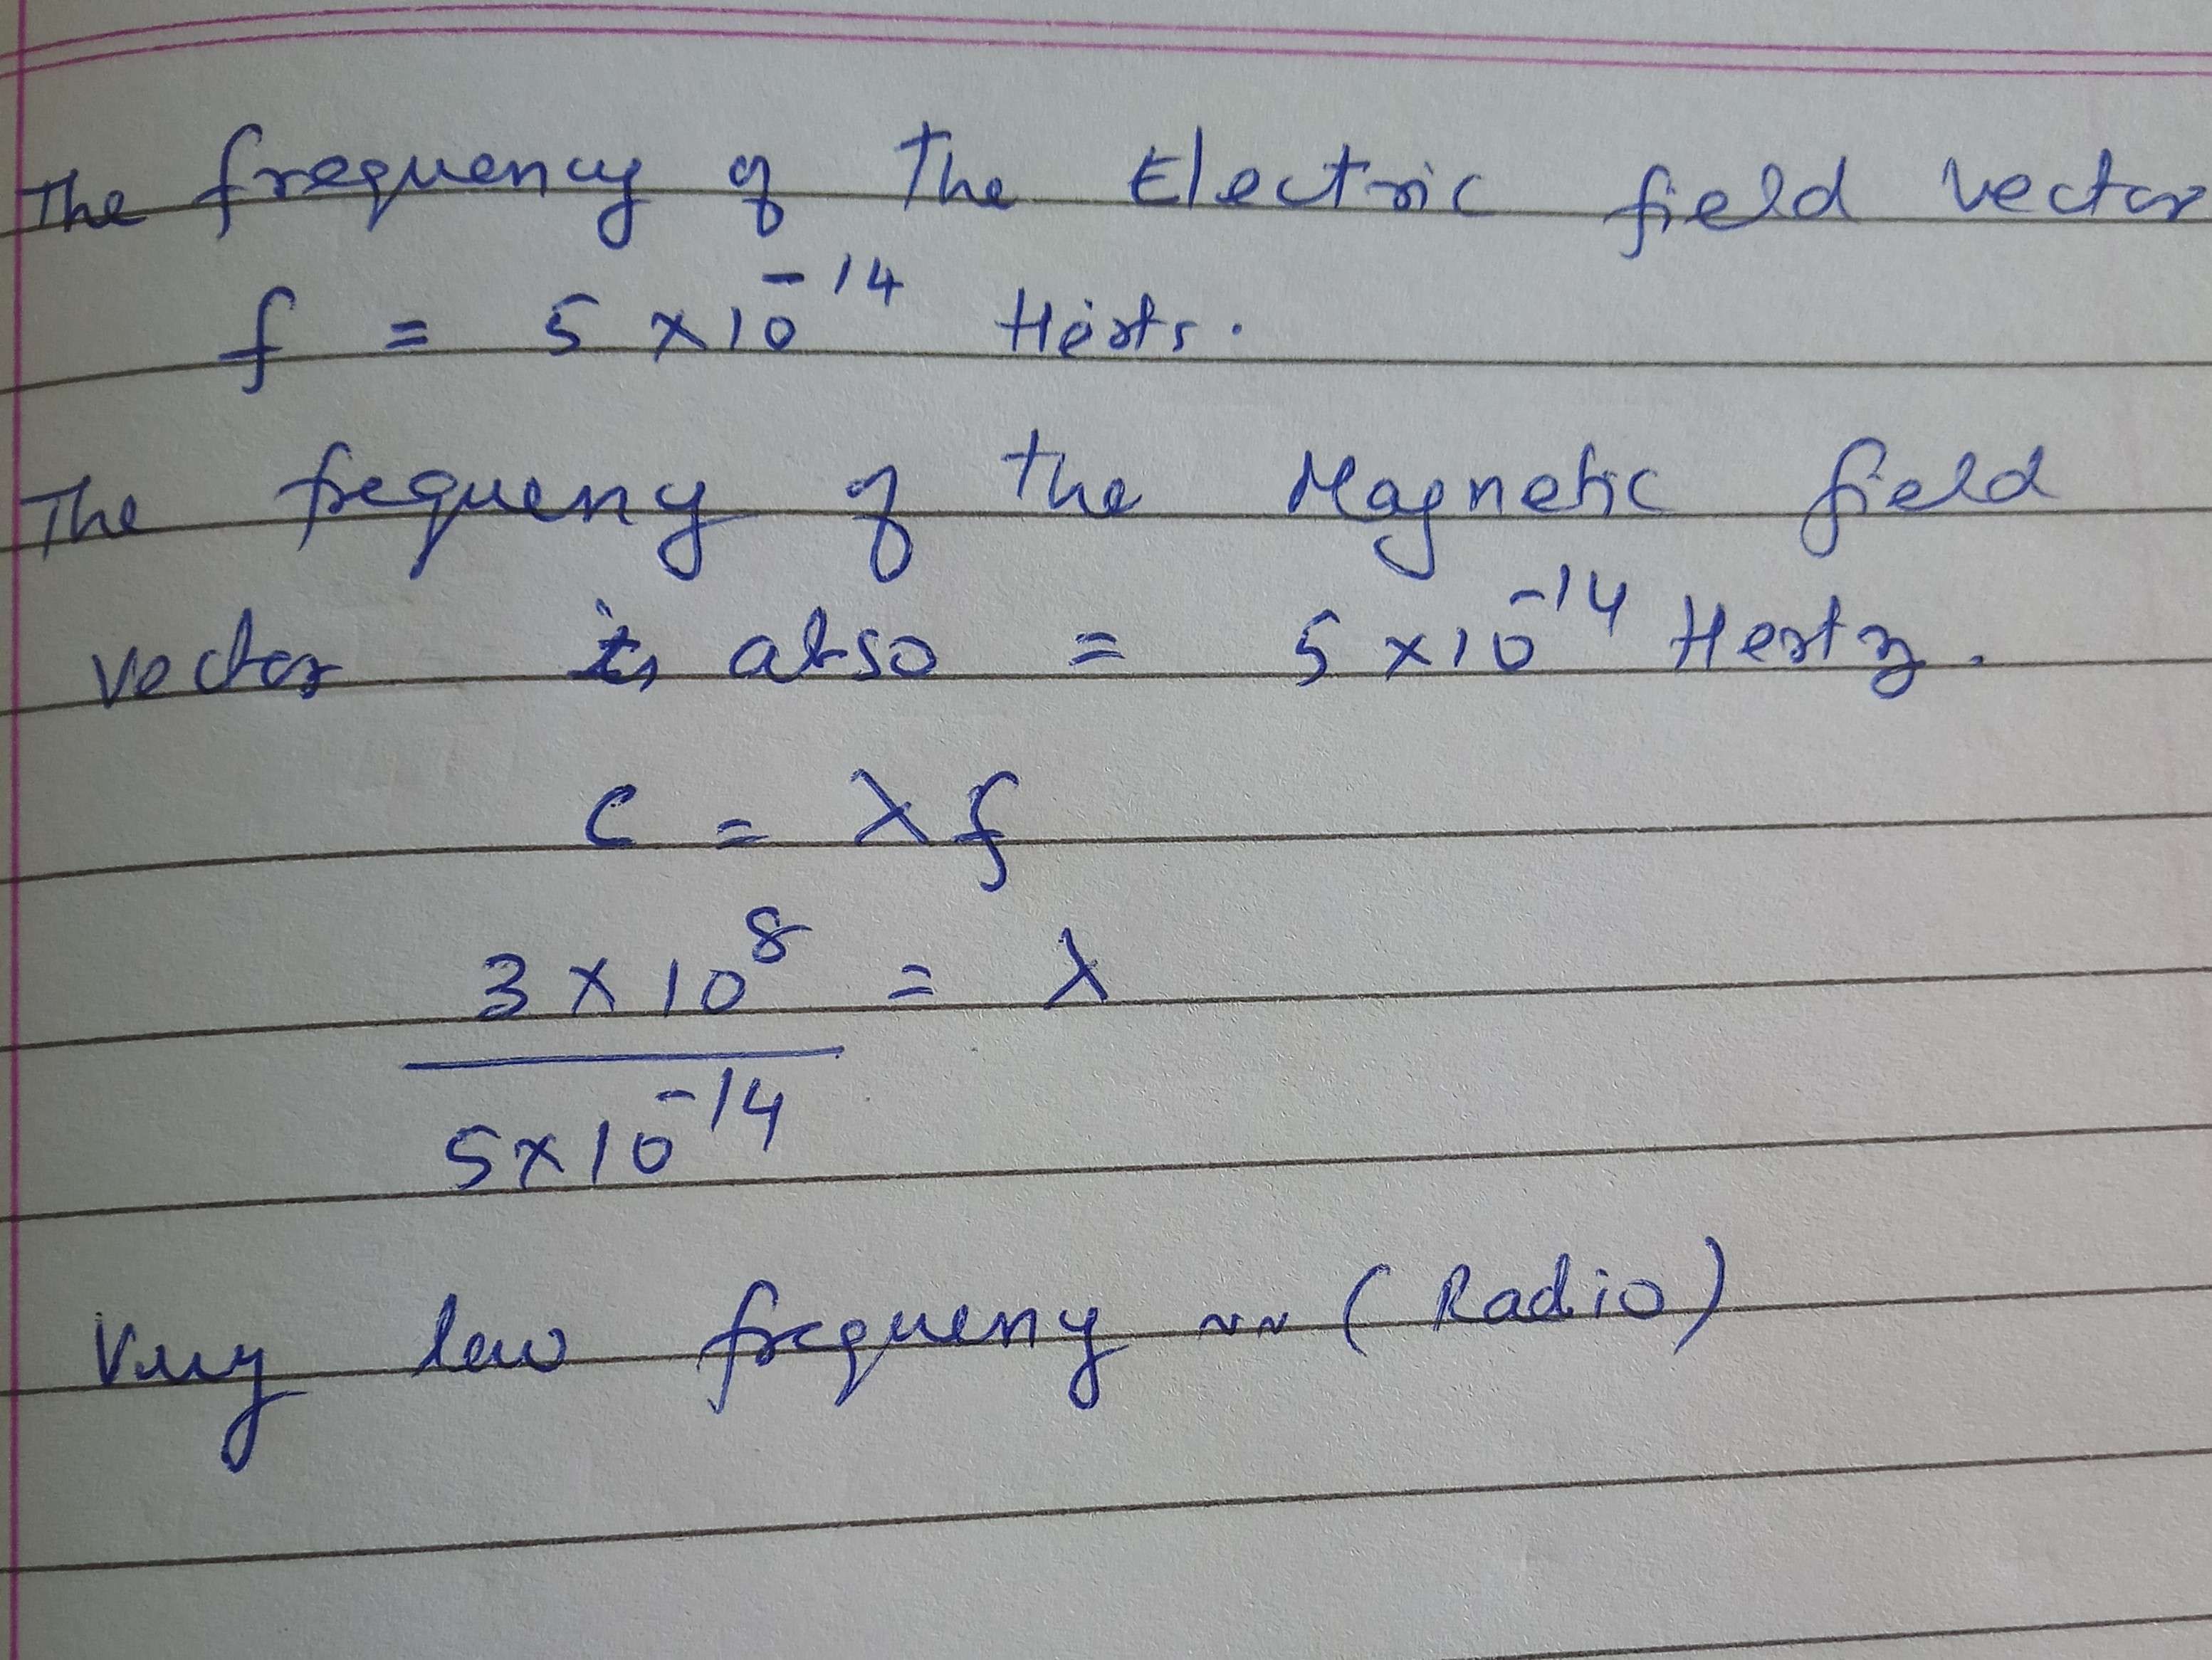 The frequency of the Electric field vector
f = 5 × 10⁻¹⁴ Herts.
The frequeny of the Magnetic field
vector is also = 5 × 10⁻¹⁴ Hertz.
c = λ f
3 × 10⁸ = λ
5 × 10⁻¹⁴
Very low frequeny ~~ (Radio)